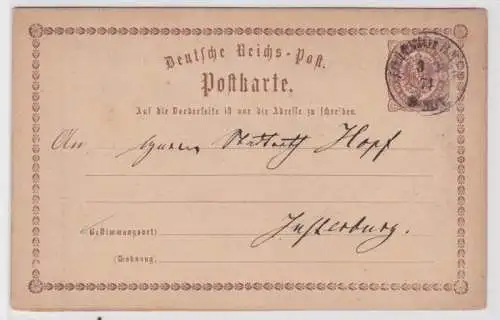 Deutsche Reichs-Post.
Postkarte.
Auf die Vorderseite ist nur die Adresse zu schreiben.
An Herrn Stadtrath Hopf
Insterburg.
(Bestimmungsort)
(Wohnung.)